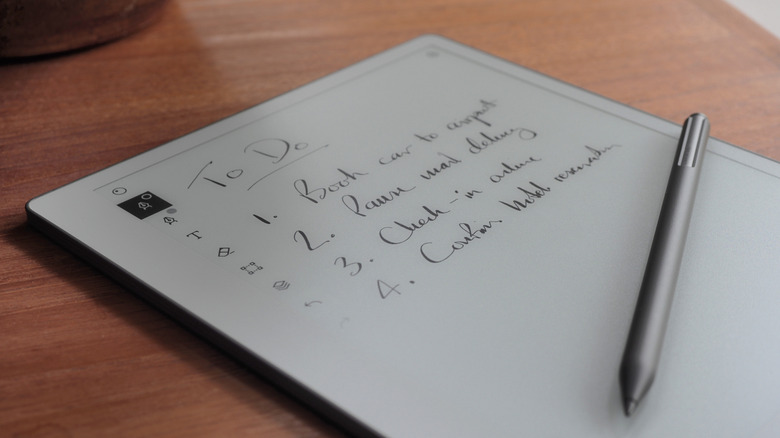 To Do
1. Book car to airport
2. Pause mail delivery
3. Check-in online
4. Confirm hotel reservation
T